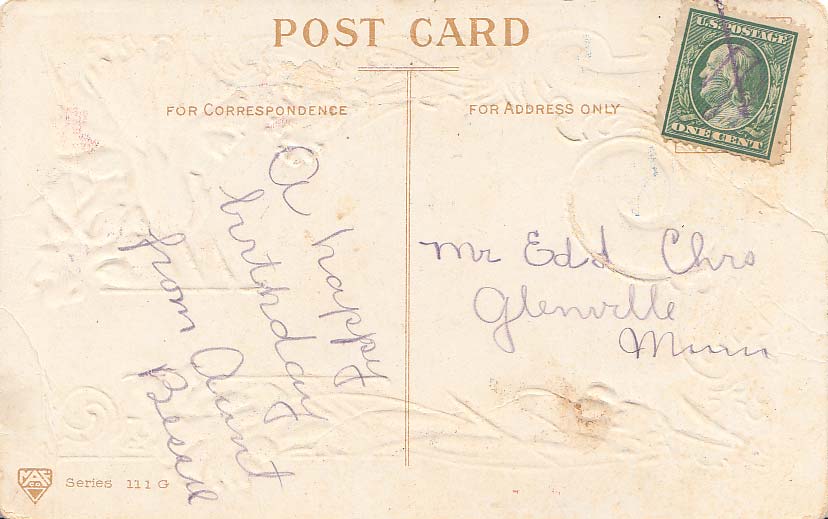 POST CARD
FOR CORRESPONDENCE
FOR ADDRESS ONLY
U.S. POSTAGE
ONE CENT
A happy
birthday
from Aunt
Bessie
Mr Edd Chrs
Glenville
Minn
Series 111 G